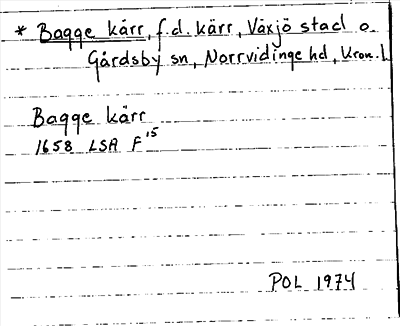 * Bagge kärr, f.d. kärr, Växjö stad o.
Gårdsby sn, Norrvidinge hd, Kron. l.
Bagge kärr
1658 LSA F 15
POL 1974